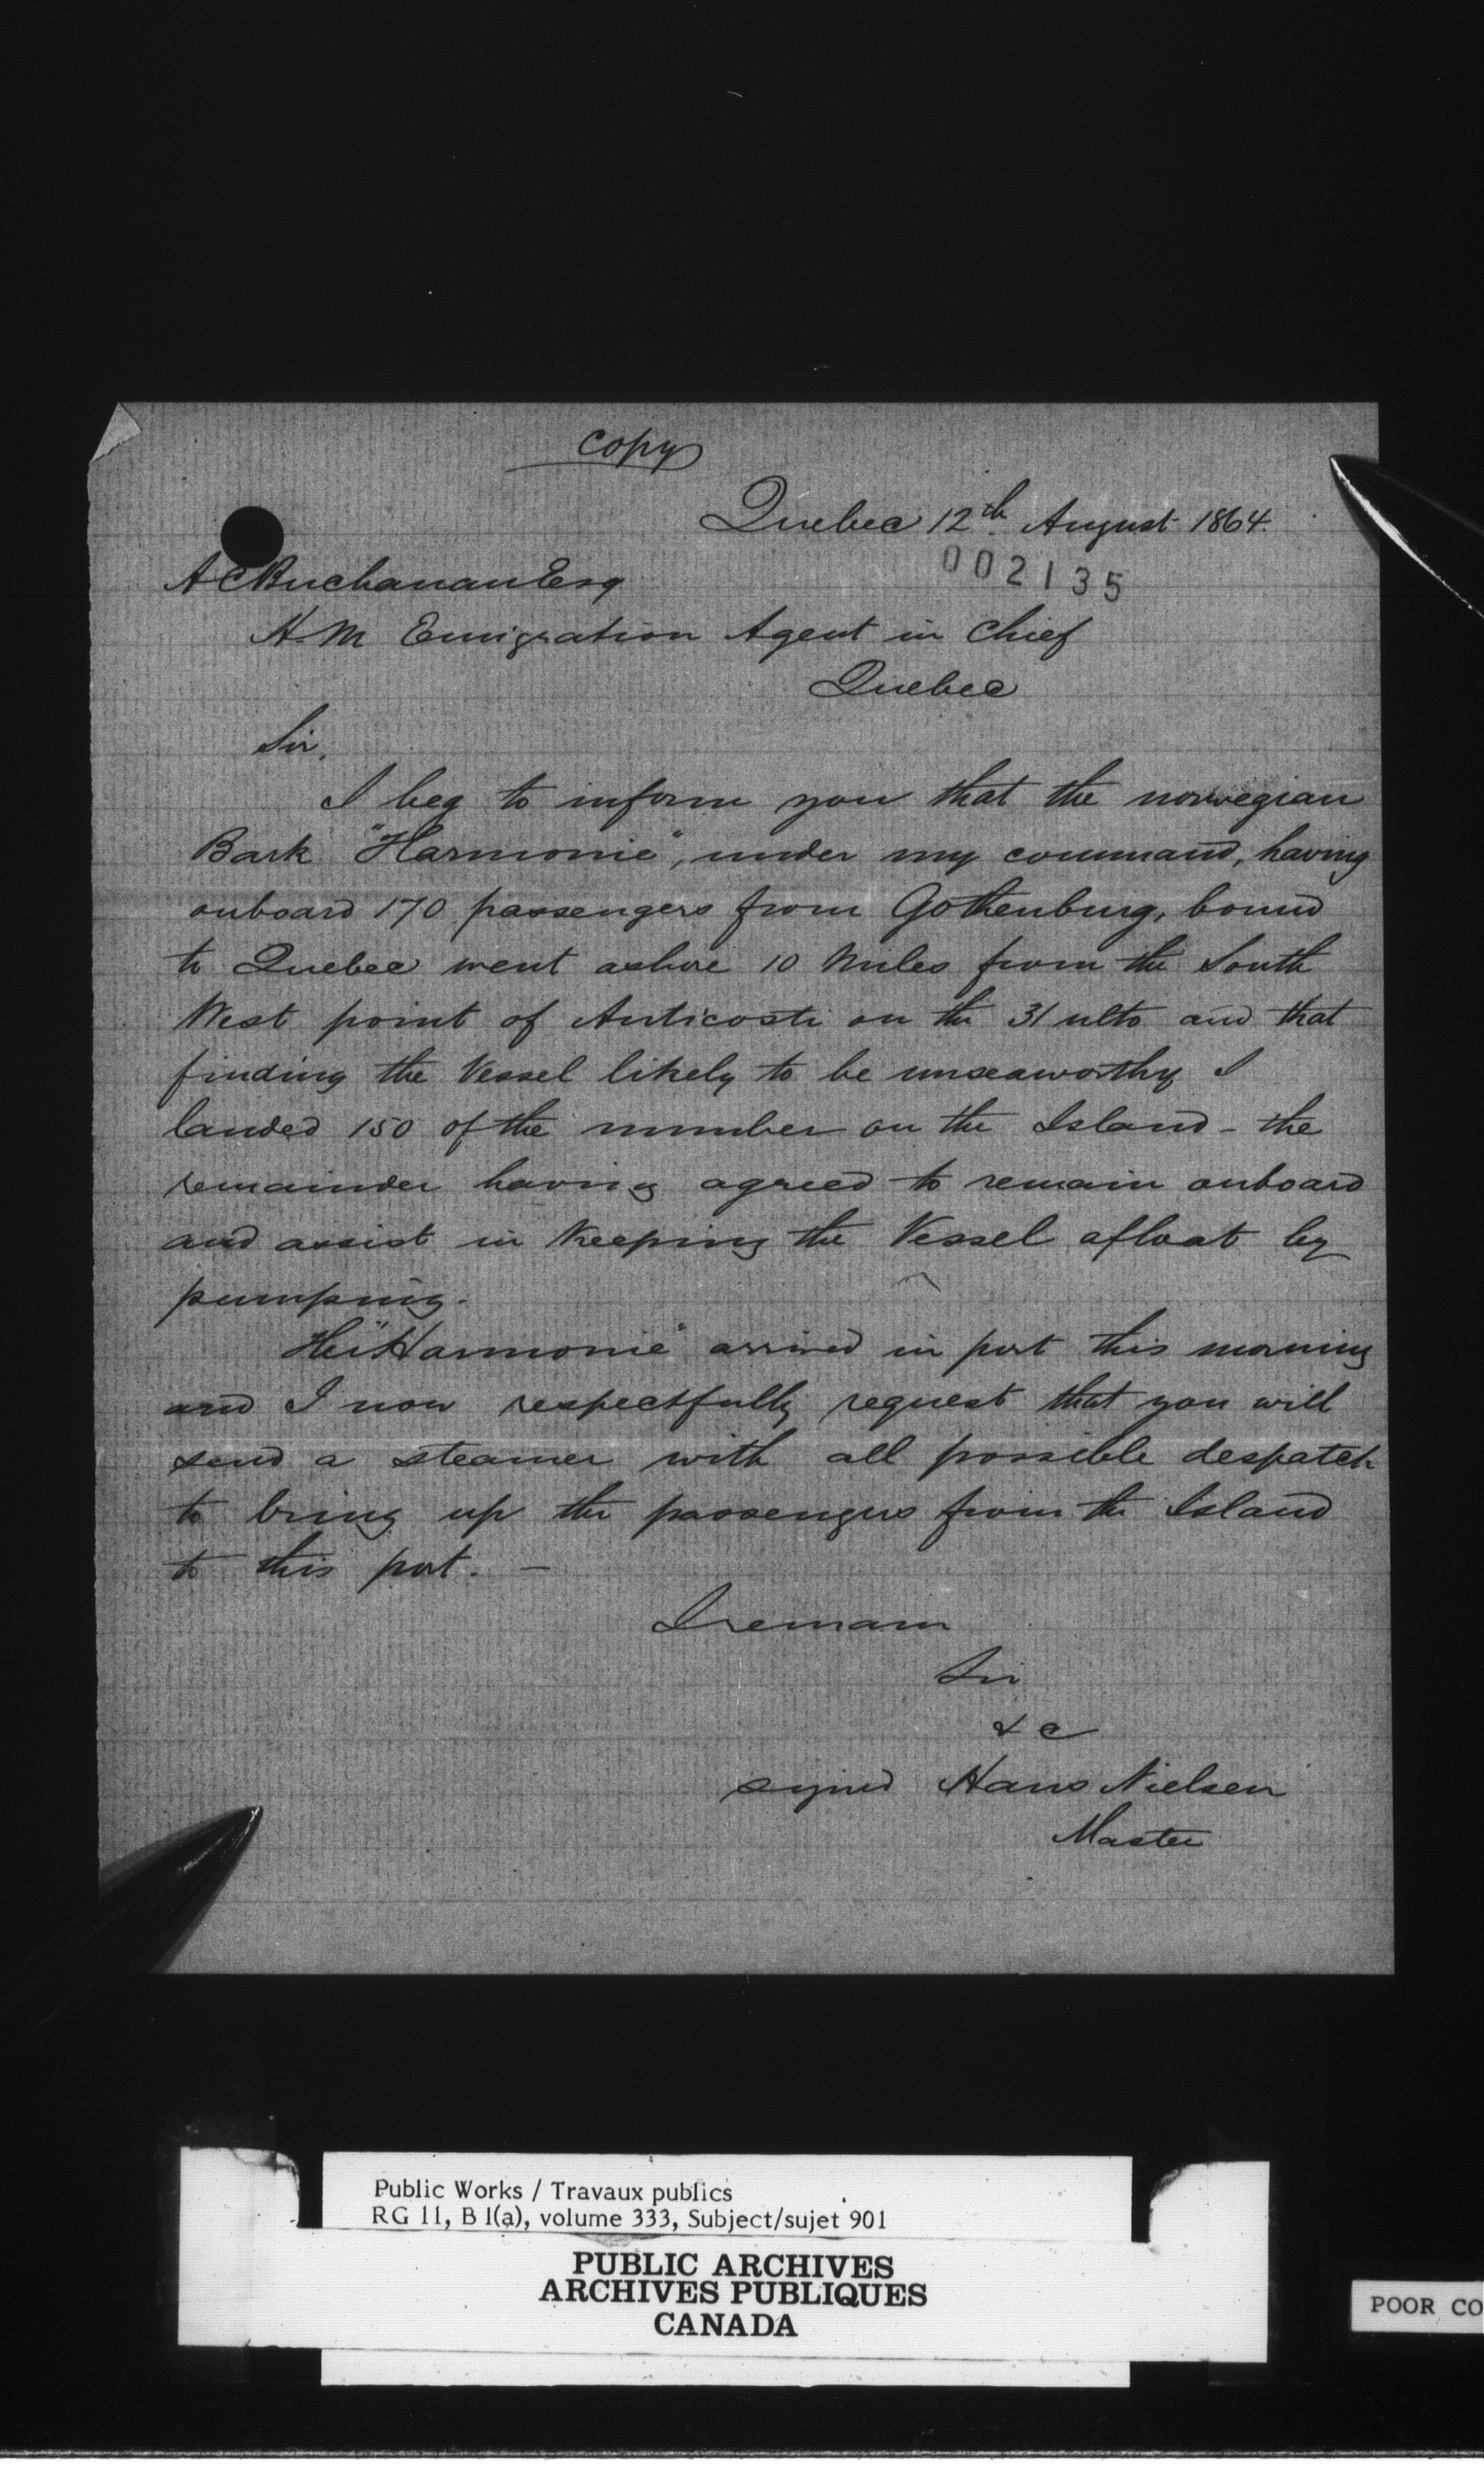 Copy
Quebec 12th August 1864.
002135
A C Buchanan Esq
H M Emigration Agent in Chief
Quebec
Sir,
I beg to inform you that the norwegian
Bark "Harmonie", under my command, having
onboard 170 passengers from Gothenburg, bound
to Quebec went ashore 10 Miles from the South
West point of Anticosti on the 31 ulto and that
finding the Vessel likely to be unseaworthy I
landed 150 of the number on the Island - the
remainder having agreed to remain onboard
and assist in Keeping the Vessel afloat by
pumping.
The "Harmonie" arrived in port this morning
and I now respectfully request that you will
send a steamer with all possible despatch
to bring up the passengers from the Island
to this port. -
I remain
Sir
&c
signed Hans Nielsen
Master
Public Works / Travaux publics
RG 11, B 1(a), volume 333, Subject/sujet 901
PUBLIC ARCHIVES
ARCHIVES PUBLIQUES
CANADA
POOR CO